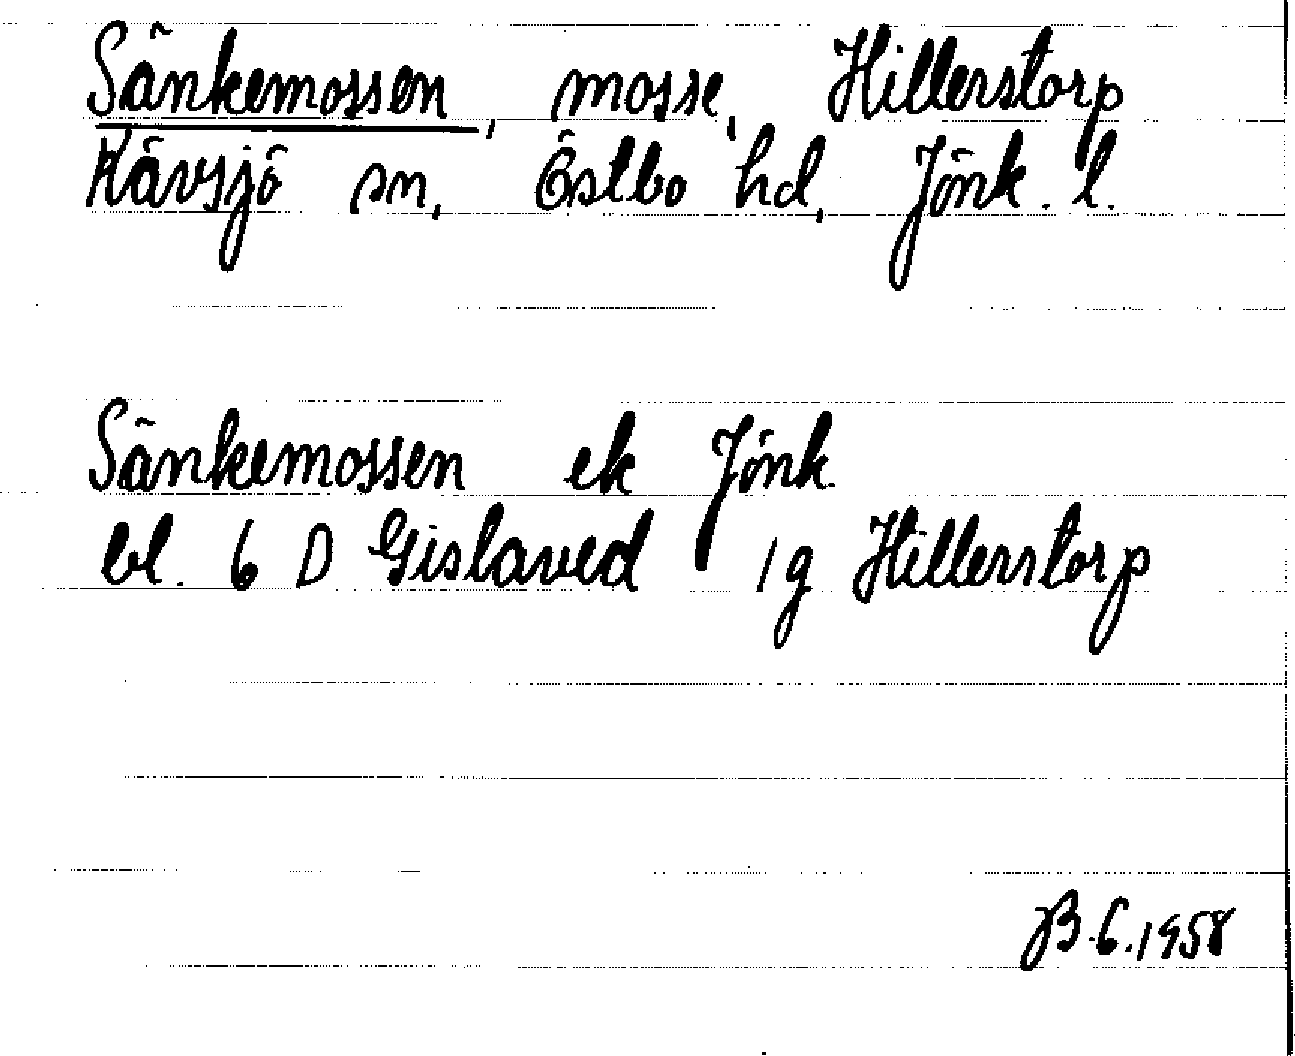 Sänkemossen, mosse, Hillerstorp
Kävsjö sn, Östbo hd, Jönk. l.
Sänkemossen ek Jönk.
bl. 6 D Gislaved 1g Hillerstorp
B.C. 1958